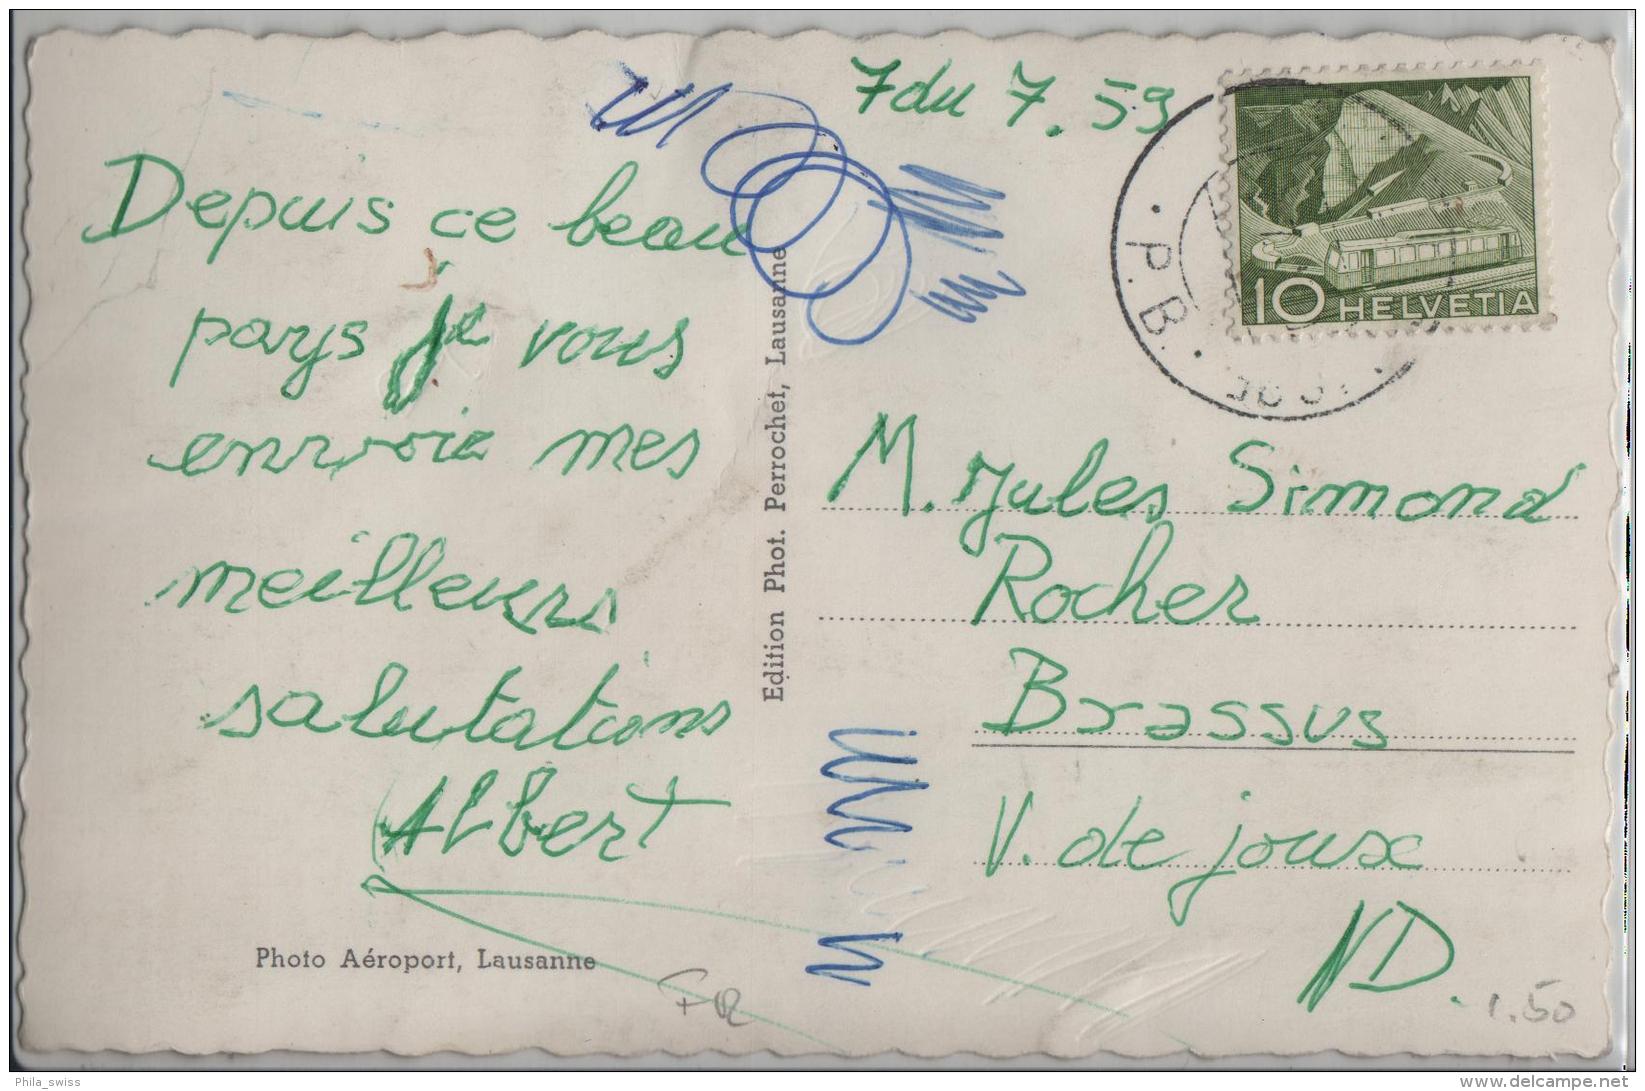 7 du 7. 59
Depuis ce beau
pays je vous
envoie mes
meilleurs
salutations
Albert
Photo Aéroport, Lausanne
Edition Phot. Perrochet, Lausanne
10 HELVETIA
P.B.
M. Jules Simond
Rocher
Brassus
V. de joux
ND.
1.50
Phila_swiss
www.delcampe.net